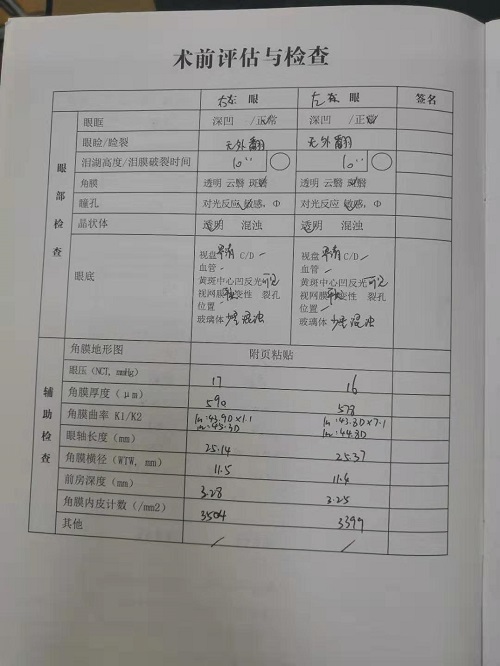 术前评估与检查
右眼 左眼 签名
眼部检查
眼眶 深凹 /正常 深凹 /正常
眼睑/睑裂 无外翻 无外翻
泪湖高度/泪膜破裂时间 10'' 10''
角膜 透明 云翳 斑翳 透明 云翳 斑翳
瞳孔 对光反应 敏感, Φ 对光反应 敏感, Φ
晶状体 透明 混浊 透明 混浊
眼底
视盘 C/D 视盘 C/D
血管 血管
黄斑中心凹反光 可见 黄斑中心凹反光 可见
视网膜 变性 裂孔 视网膜 变性 裂孔
位置 位置
玻璃体 少量混浊 玻璃体 少量混浊
辅助检查
角膜地形图 附页粘贴
眼压(NCT, mmHg) 17 16
角膜厚度(μm) 590 578
角膜曲率 K1/K2
眼轴长度(mm) 25.14 25.37
角膜横径(WTW, mm) 11.5 11.4
前房深度(mm) 3.28 3.25
角膜内皮计数(/mm2) 3504 3399
其他 / /